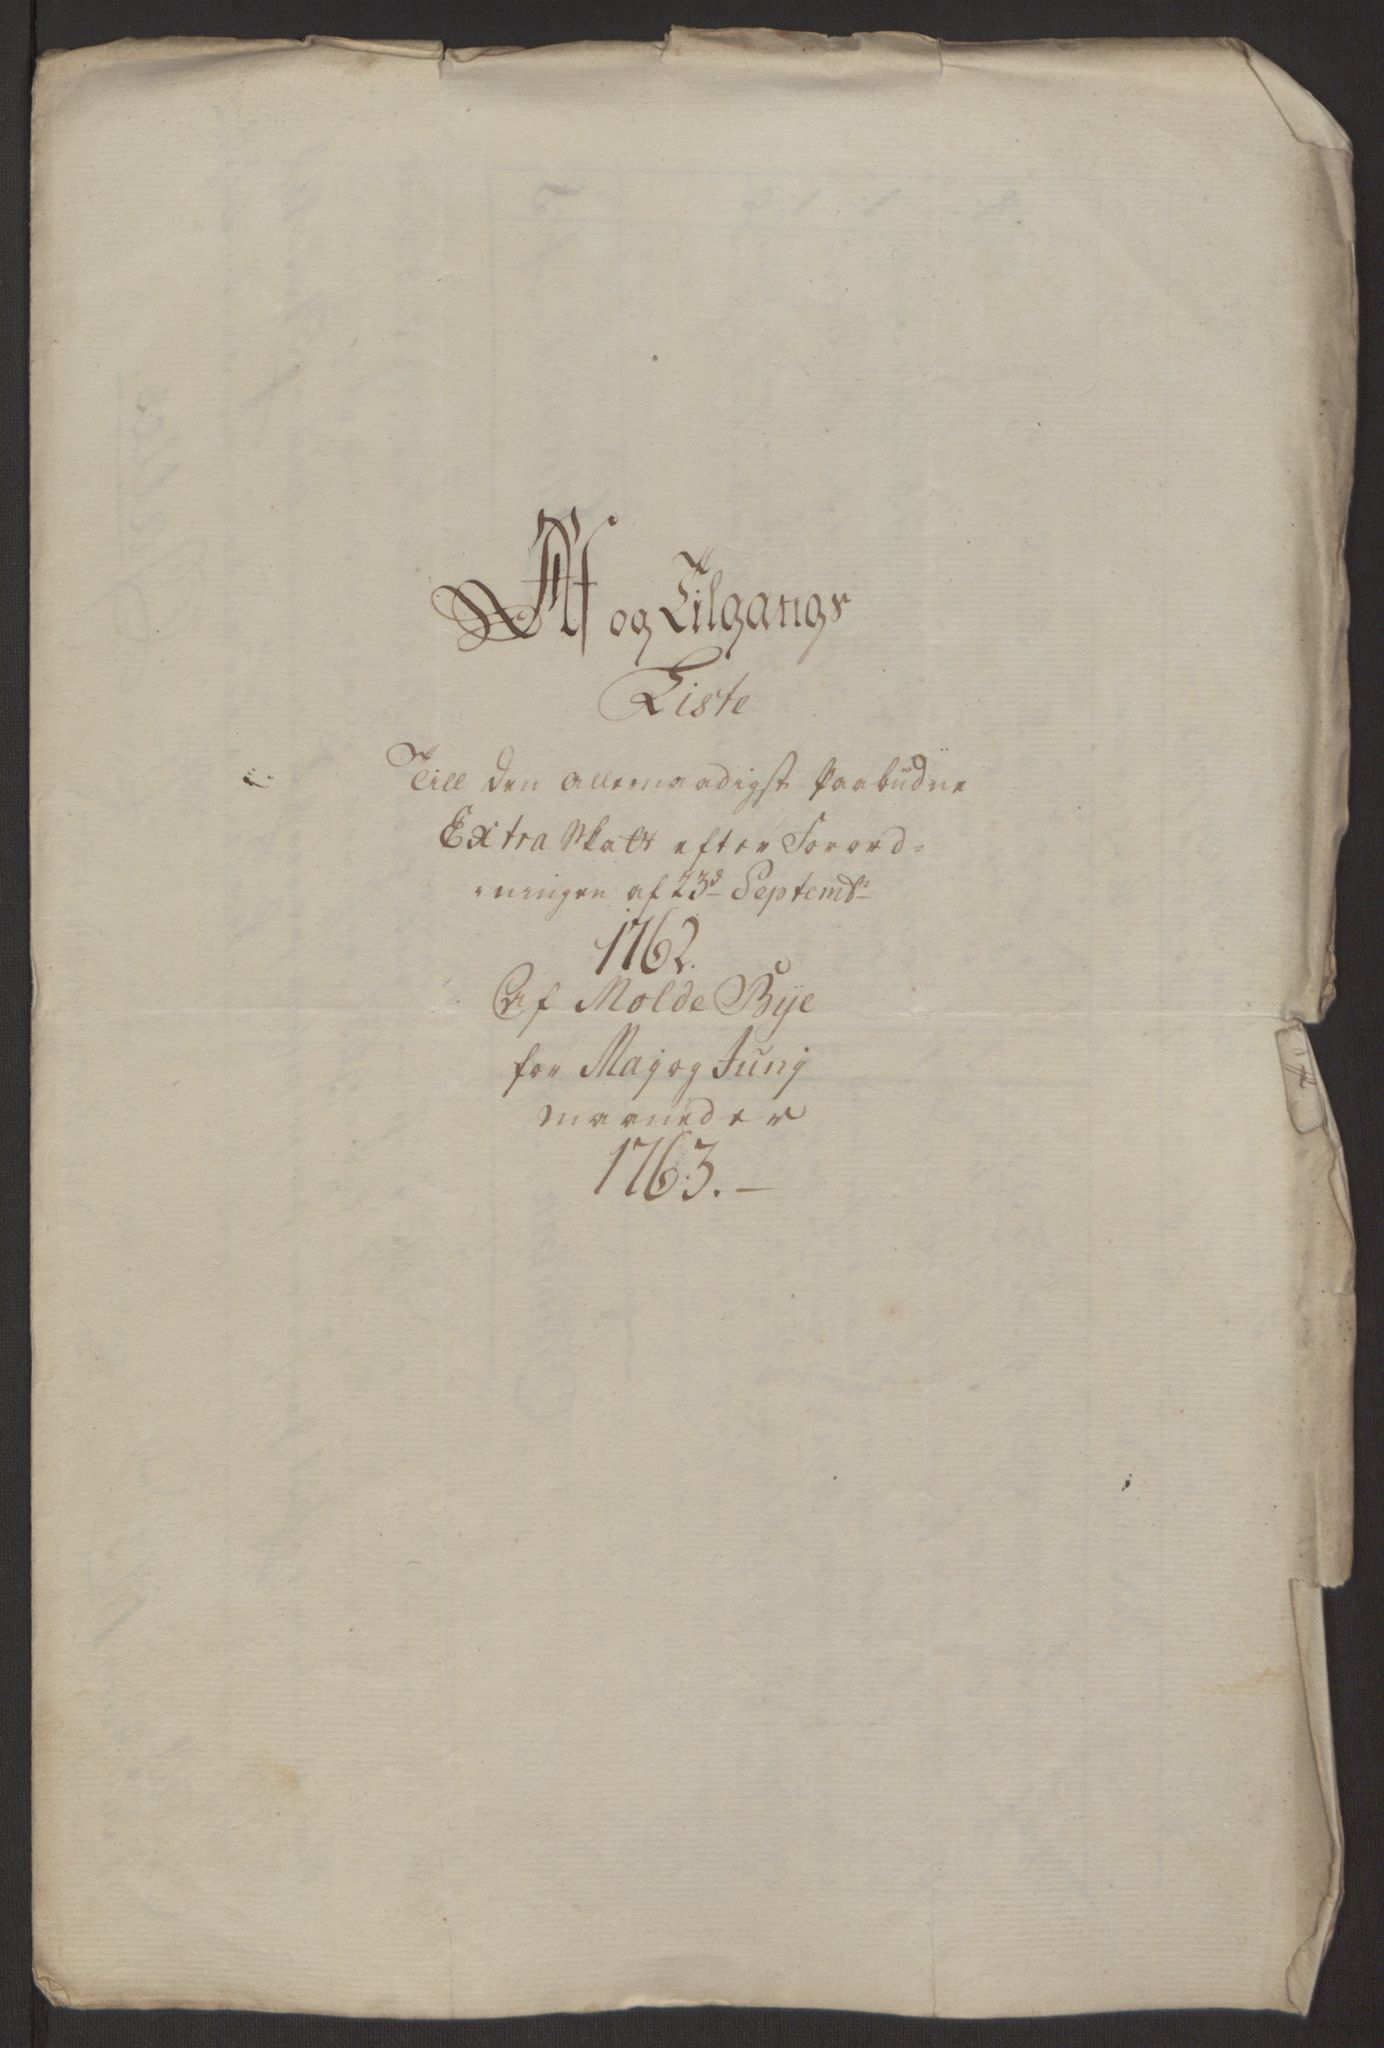 Af og Tilgangs
Liste
Till den allernaadigst Paabudne
Extra Skatt efter Forord-
-ningen af 23d Septembr
1762.
Af Molde Bye
for Maj og Junj
maaneder
1763.